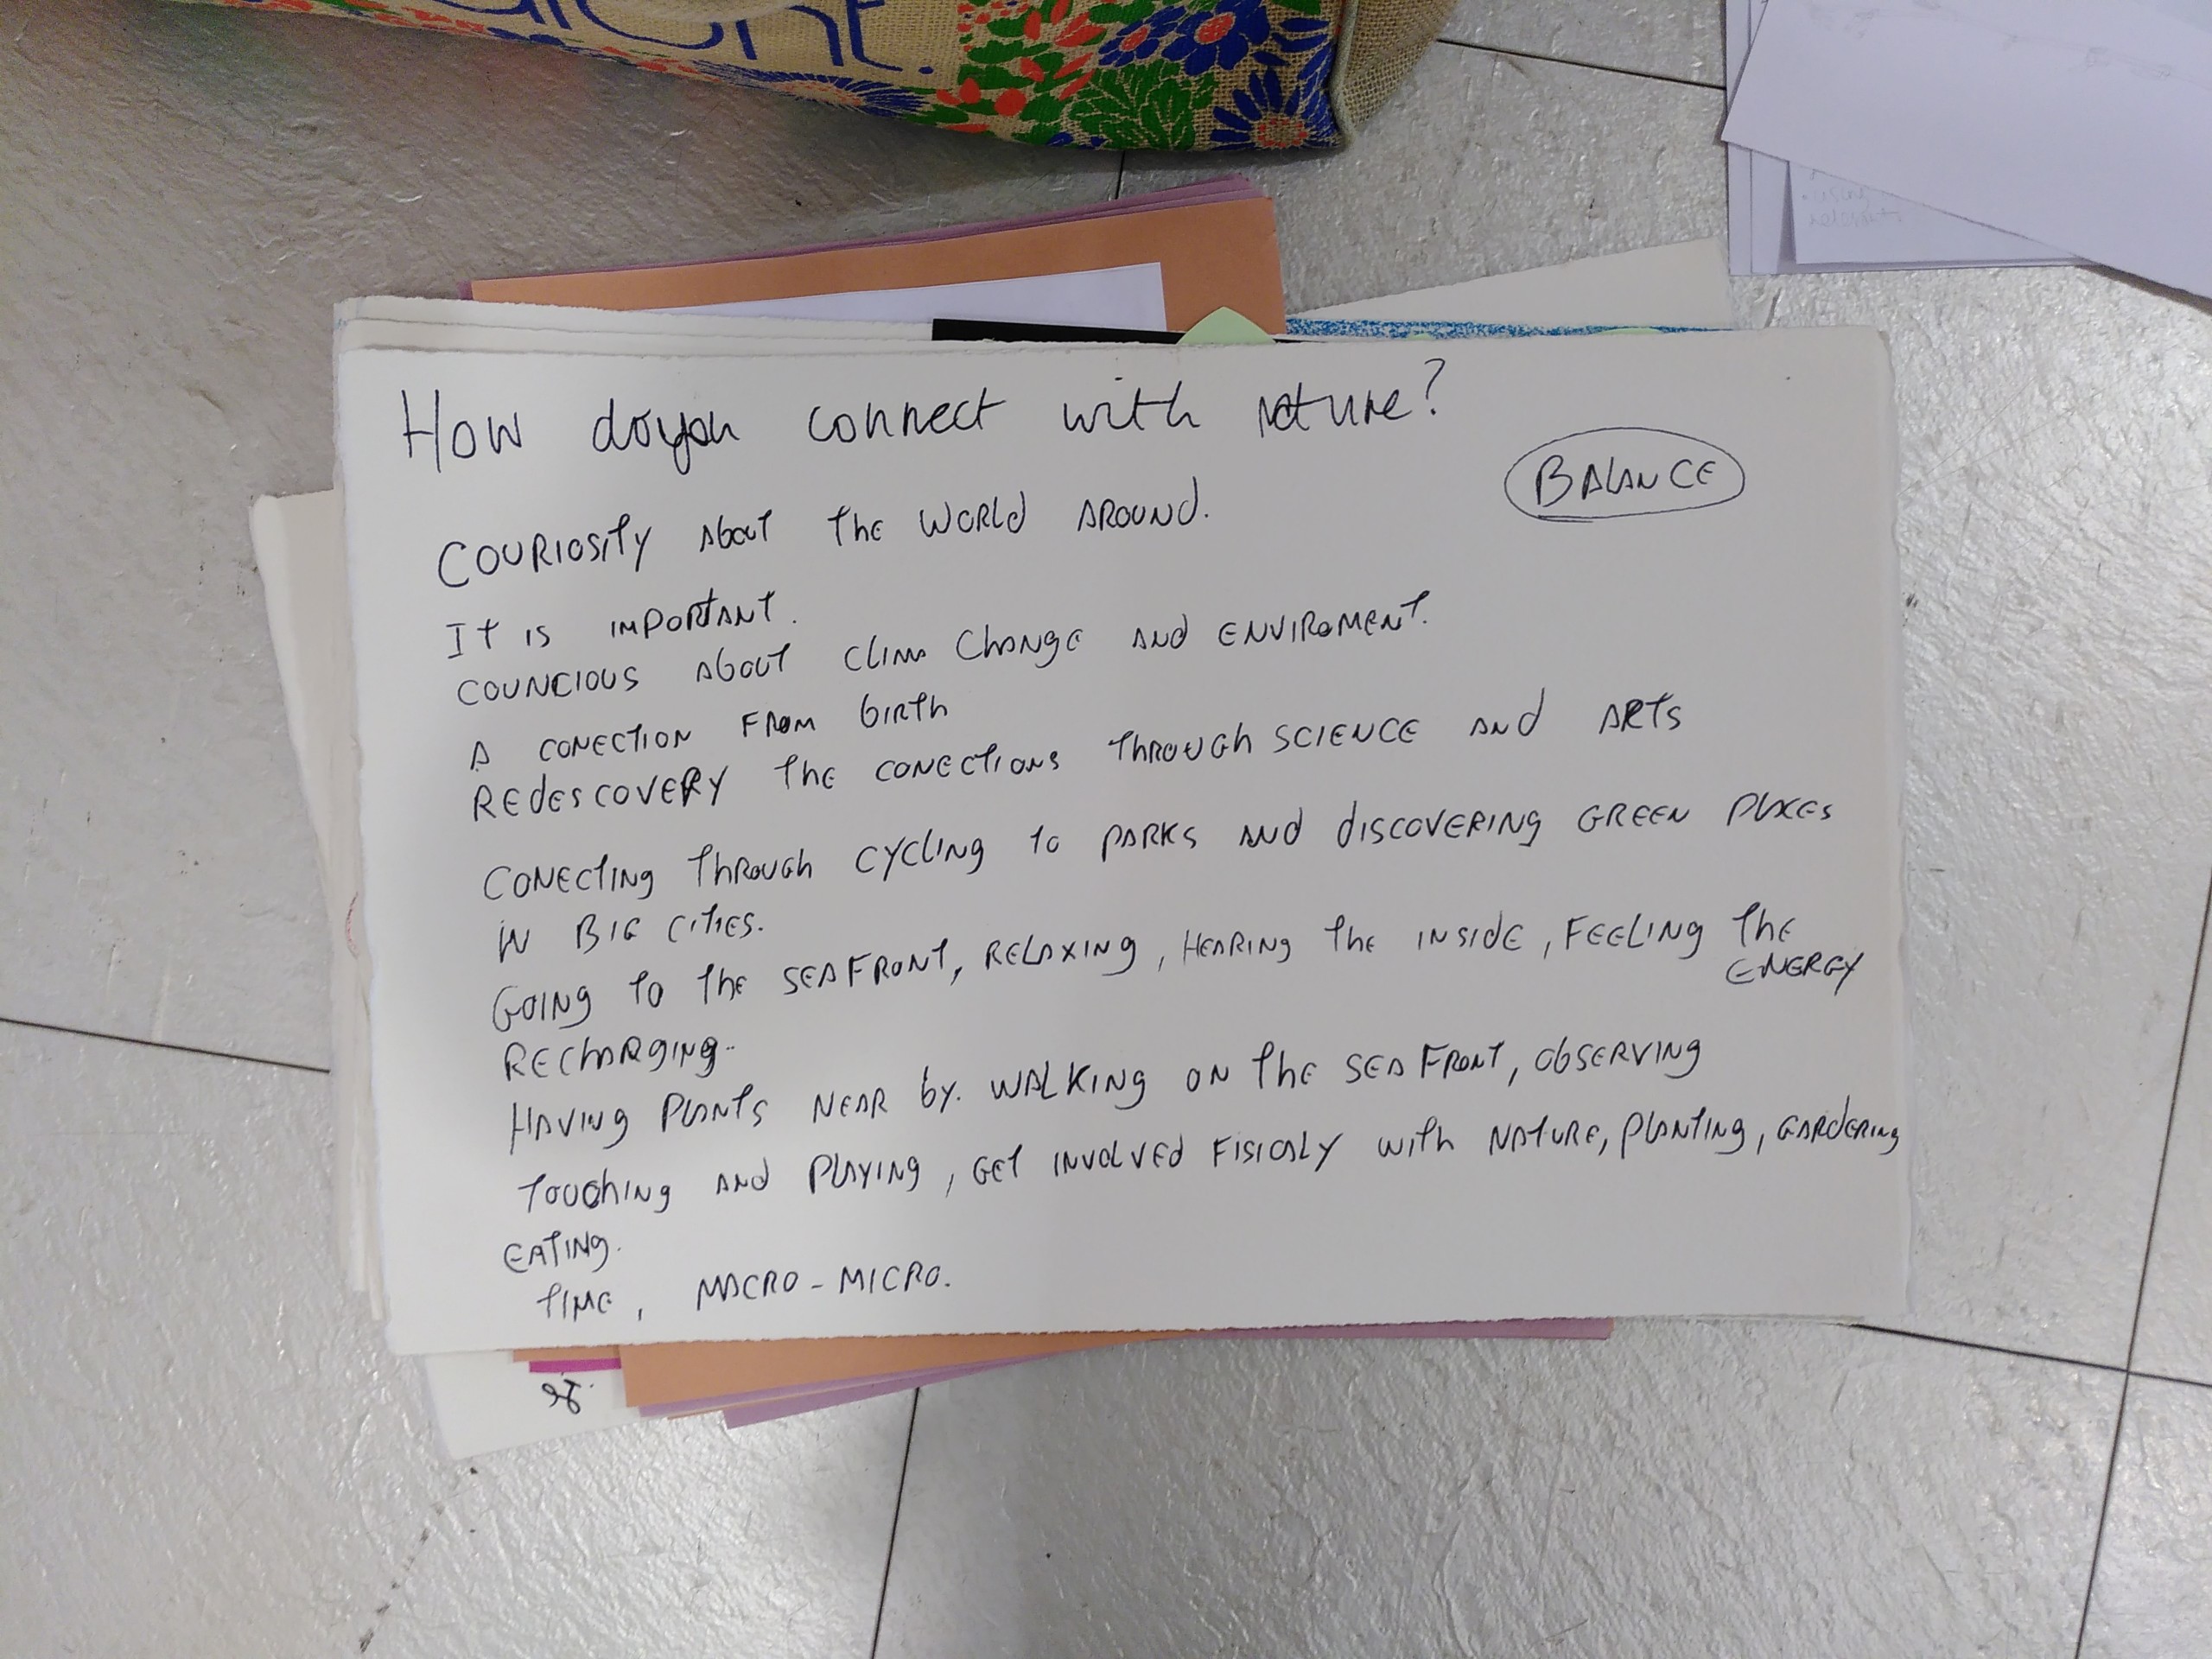 How do you connect with nature?
BALANCE
COURIOSITY ABOUT THE WORLD AROUND.
IT IS IMPORTANT.
COUNCIOUS ABOUT CLIMA CHANGE AND ENVIROMENT.
A CONECTION FROM BIRTH
REDESCOVERY THE CONECTIONS THROUGH SCIENCE AND ARTS
CONECTING THROUGH CYCLING TO PARKS AND DISCOVERING GREEN PLACES
IN BIG CITIES.
GOING TO THE SEAFRONT, RELAXING, HEARING THE INSIDE, FEELING THE
ENERGY
RECHARGING.
HAVING PLANTS NEAR BY. WALKING ON THE SEA FRONT, OBSERVING
TOUCHING AND PLAYING, GET INVOLVED FISICALY WITH NATURE, PLANTING, GARDERING
EATING.
TIME, MACRO - MICRO.